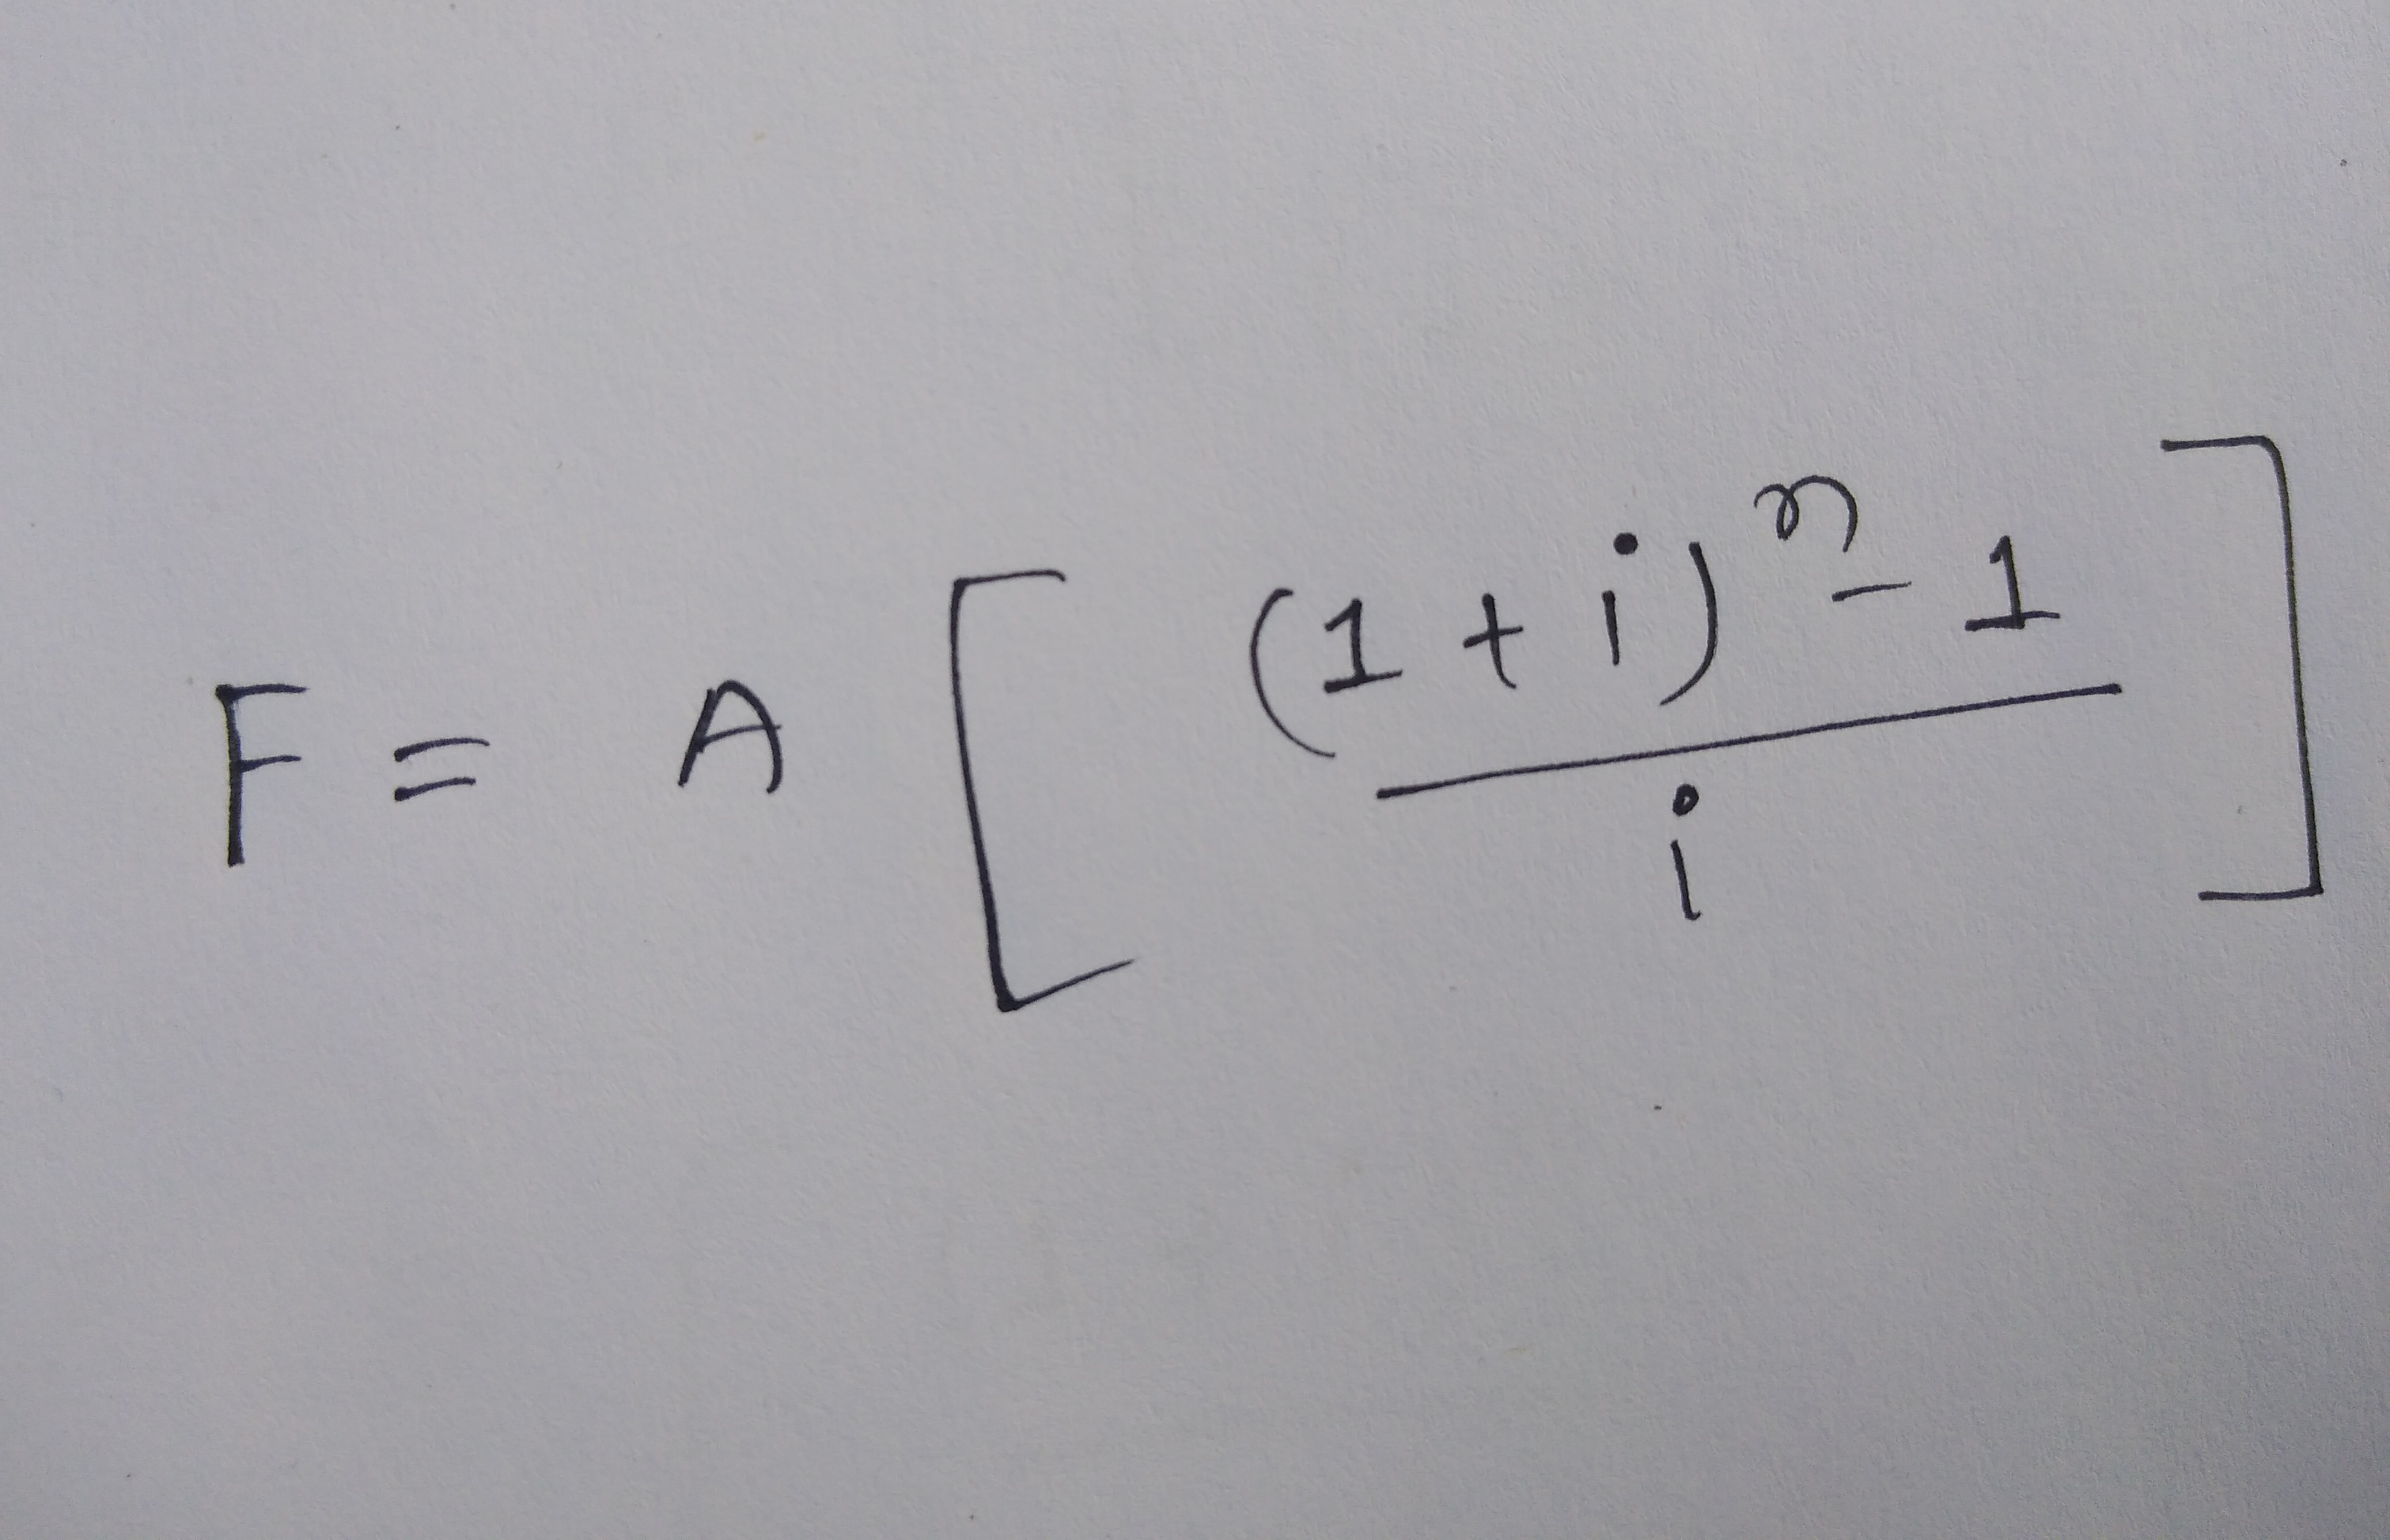 F = A [ ((1 + i)^n - 1) / i ]